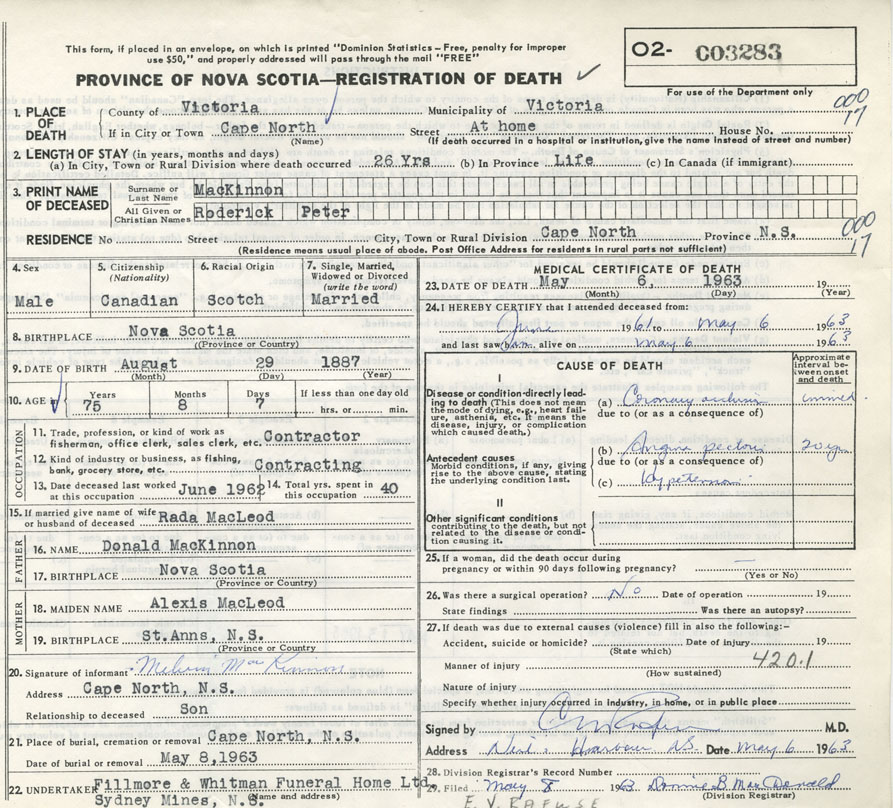 This form, if placed in an envelope, on which is printed "Dominion Statistics – Free, penalty for improper
use $50," and properly addressed will pass through the mail "FREE"
O2- C03283
PROVINCE OF NOVA SCOTIA—REGISTRATION OF DEATH ✓
For use of the Department only
1. PLACE OF DEATH
County of Victoria Municipality of Victoria
000
17
If in City or Town Cape North Street At home House No.
(Name) (If death occurred in a hospital or institution, give the name instead of street and number)
2. LENGTH OF STAY (in years, months and days)
(a) In City, Town or Rural Division where death occurred 26 Yrs (b) In Province Life (c) In Canada (if immigrant)
3. PRINT NAME OF DECEASED
Surname or Last Name MacKinnon
All Given or Christian Names Roderick Peter
000
17
RESIDENCE No Street City, Town or Rural Division Cape North Province N.S.
(Residence means usual place of abode. Post Office Address for residents in rural parts not sufficient)
4. Sex
Male
5. Citizenship
(Nationality)
Canadian
6. Racial Origin
Scotch
7. Single, Married, Widowed or Divorced
(write the word)
Married
8. BIRTHPLACE Nova Scotia
(Province or Country)
9. DATE OF BIRTH August 29 1887
(Month) (Day) (Year)
10. AGE in Years 75 Months 8 Days 7 If less than one day old
hrs. or min.
OCCUPATION
11. Trade, profession, or kind of work as
fisherman, office clerk, sales clerk, etc. Contractor
12. Kind of industry or business, as fishing,
bank, grocery store, etc. Contracting
13. Date deceased last worked at this occupation June 1962 14. Total yrs. spent in this occupation 40
15. If married give name of wife
or husband of deceased Rada MacLeod
FATHER
16. NAME Donald MacKinnon
17. BIRTHPLACE Nova Scotia
(Province or Country)
MOTHER
18. MAIDEN NAME Alexis MacLeod
19. BIRTHPLACE St.Anns, N.S.
(Province or Country)
20. Signature of informant Melvin MacKinnon
Address Cape North, N.S.
Relationship to deceased Son
21. Place of burial, cremation or removal Cape North, N.S.
Date of burial or removal May 8,1963
22. UNDERTAKER Fillmore & Whitman Funeral Home Ltd
Sydney Mines, N.S.
(Name and address)
MEDICAL CERTIFICATE OF DEATH
23. DATE OF DEATH May 6, 1963 19
(Month) (Day) (Year)
24. I HEREBY CERTIFY that I attended deceased from:
June 1961 to May 6 1963
and last saw him alive on May 6 1963
CAUSE OF DEATH
Approximate interval between onset and death
I
Disease or condition-directly leading to death (This does not mean the mode of dying, e.g., heart failure, asthenia, etc. It means the disease, injury, or complication which caused death.)
(a) Coronary
due to (or as a consequence of)
Antecedent causes
Morbid conditions, if any, giving rise to the above cause, stating the underlying condition last.
(b) Angina pectoris 20 yr
due to (or as a consequence of)
(c)
II
Other significant conditions
contributing to the death, but not related to the disease or condition causing it.
25. If a woman, did the death occur during
pregnancy or within 90 days following pregnancy? —
(Yes or No)
26. Was there a surgical operation? No Date of operation 19
State findings Was there an autopsy?
27. If death was due to external causes (violence) fill in also the following:-
Accident, suicide or homicide? Date of injury 19
(State which)
Manner of injury 420.1
(How sustained)
Nature of injury
Specify whether injury occurred in industry, in home, or in public place
Signed by M.D.
Address Neil's Harbour N.S. Date May 6 1963
28. Division Registrar's Record Number
29. Filed May 8 1963 Donnie B. MacDonald
(Division Registrar)
F. V. RAFUSE